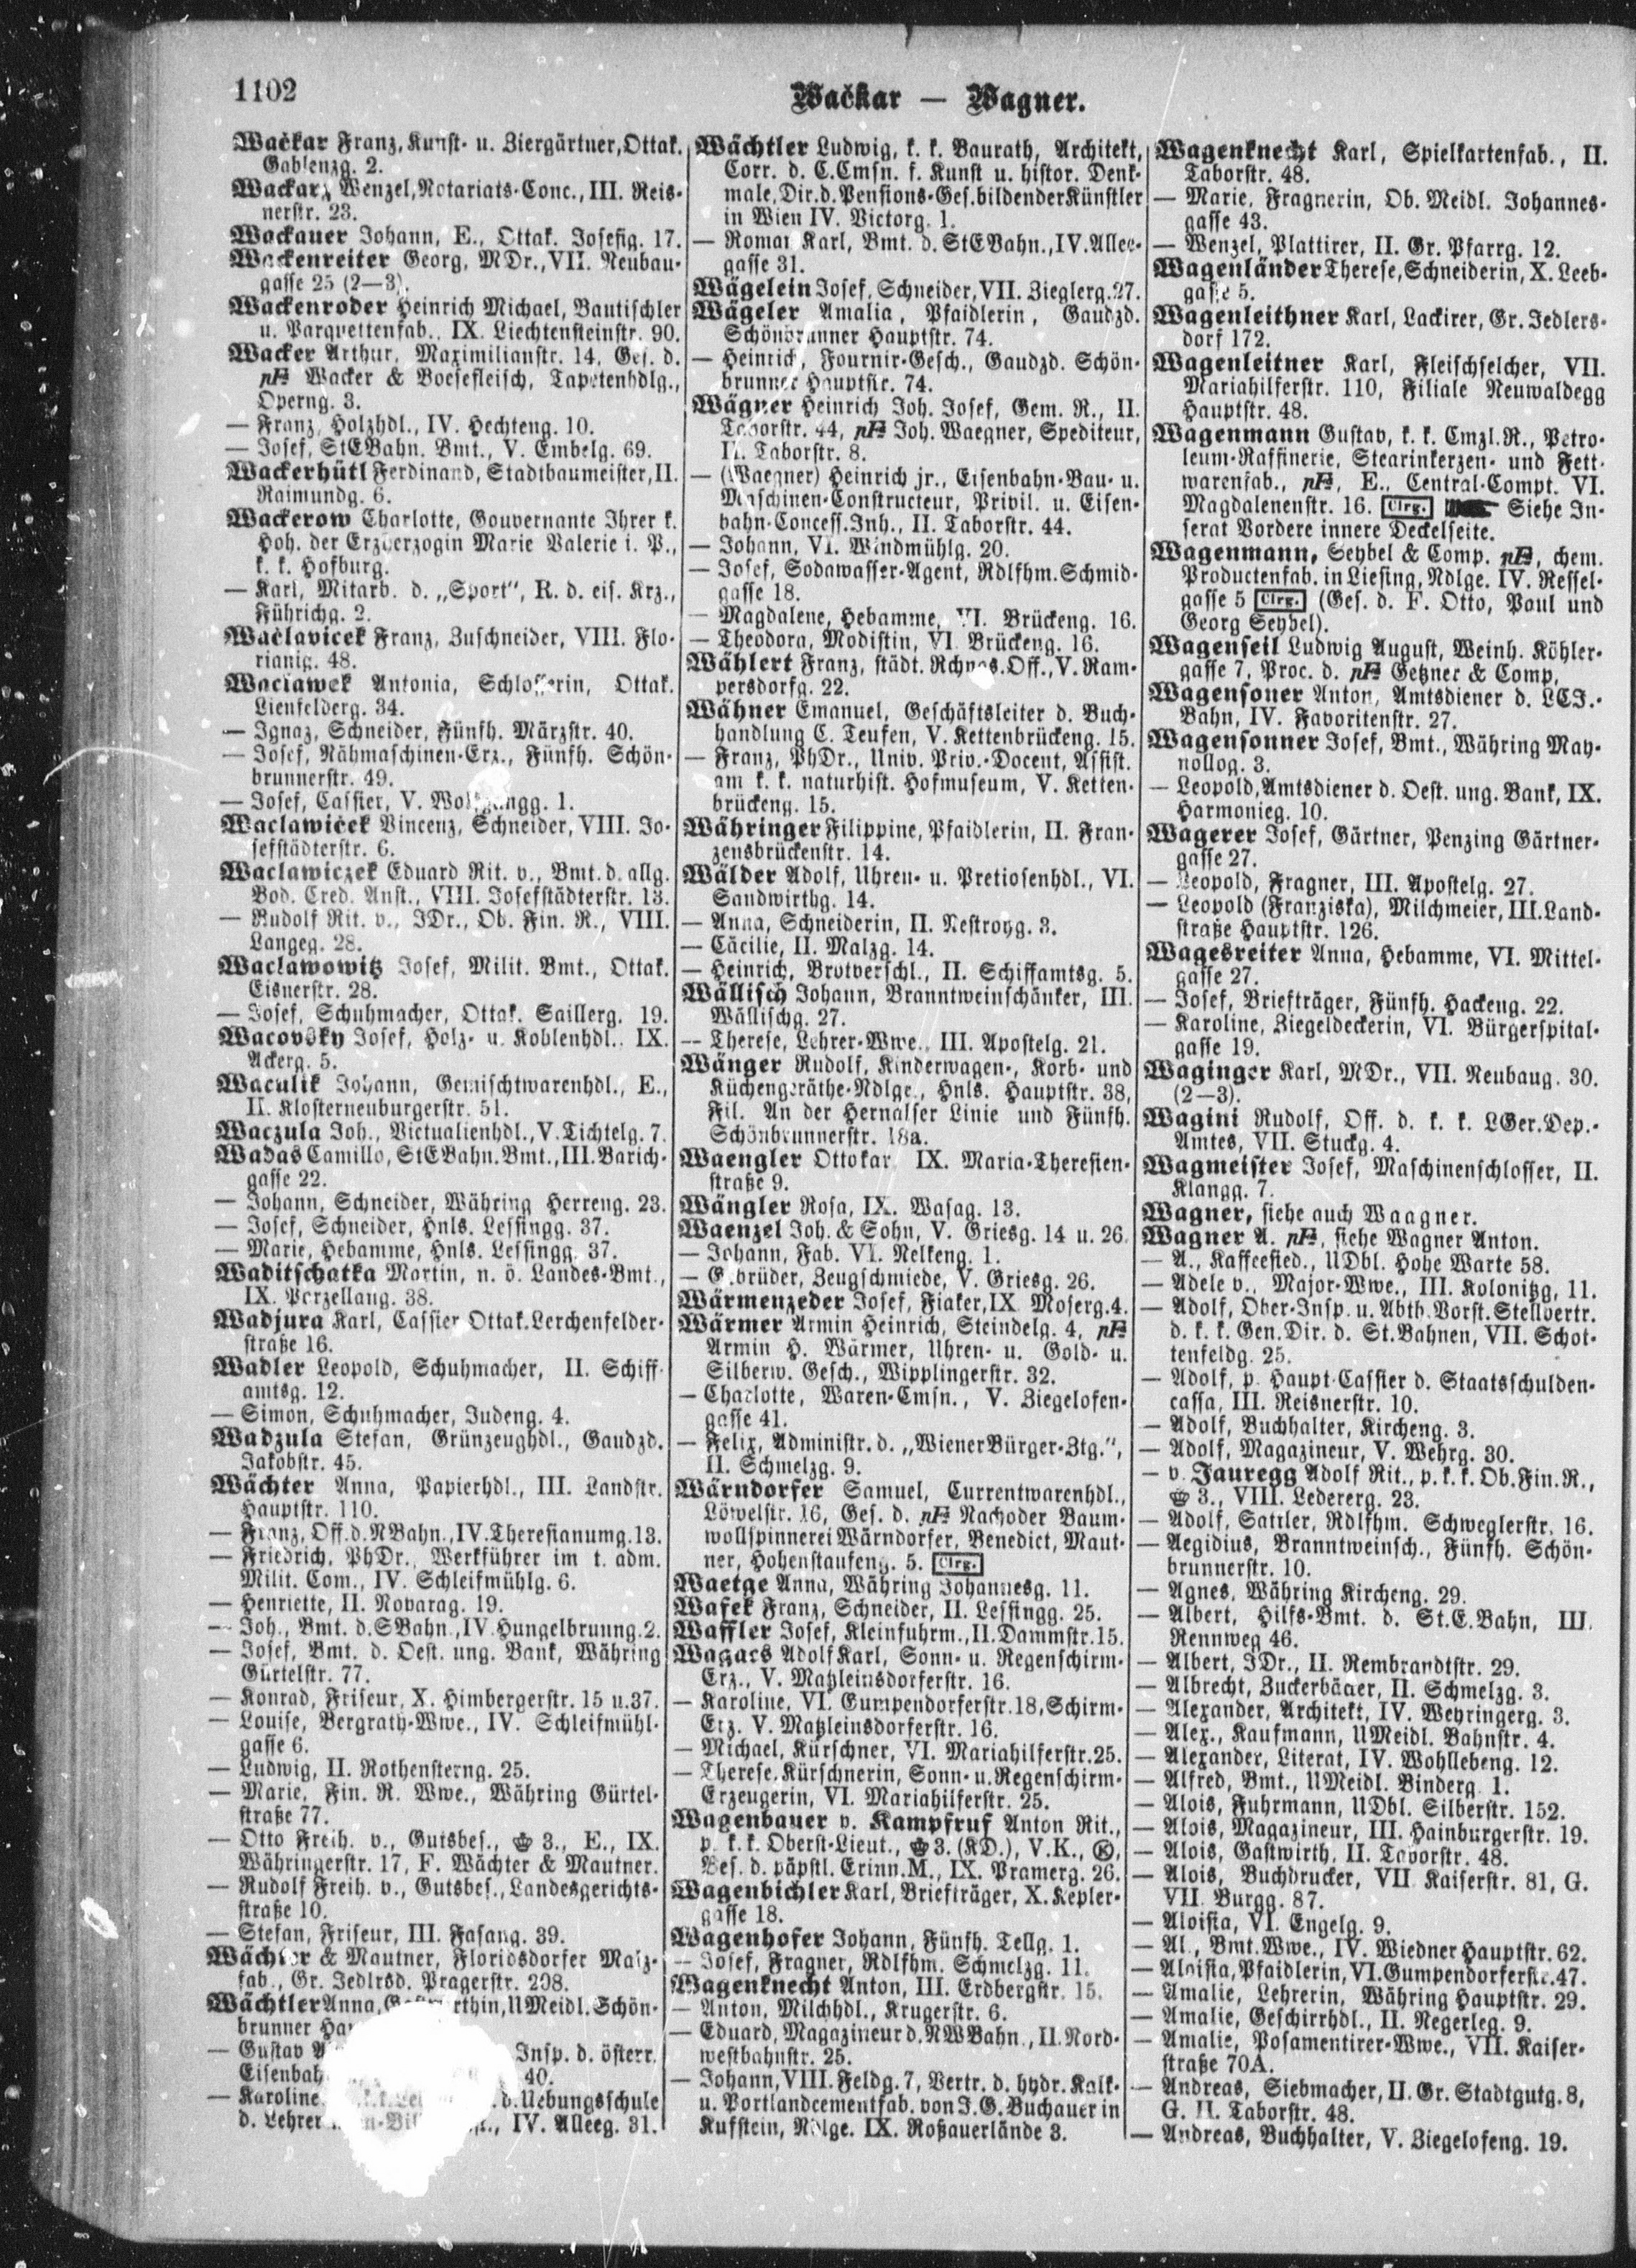 1102
Wačkar — Wagner.
Wačkar Franz, Kunst- u. Ziergärtner, Ottak.
Gablenzg. 2.
Wackarz Wenzel, Notariats-Conc., III. Reis-
nerstr. 23.
Wackauer Johann, E., Ottak. Josefig. 17.
Wackenreiter Georg, MDr., VII. Neubau-
gasse 25 (2—3).
Wackenroder Heinrich Michael, Bautischler
u. Parquettenfab., IX. Liechtensteinstr. 90.
Wacker Arthur, Maximilianstr. 14, Ges. d.
pF Wacker & Boesefleisch, Tapetenhdlg.,
Operng. 3.
— Franz, Holzhdl., IV. Hechteng. 10.
— Josef, StEBahn. Bmt., V. Embelg. 69.
Wackerhütl Ferdinand, Stadtbaumeister, II.
Raimundg. 6.
Wackerow Charlotte, Gouvernante Ihrer k.
Hoh. der Erzherzogin Marie Valerie i. P.,
k. k. Hofburg.
— Karl, Mitarb. d. „Sport", R. d. eis. Krz.,
Führichg. 2.
Waclavicek Franz, Zuschneider, VIII. Flo-
rianig. 48.
Waclawek Antonia, Schlosserin, Ottak.
Lienfelderg. 34.
— Ignaz, Schneider, Fünfh. Märzstr. 40.
— Josef, Nähmaschinen-Erz., Fünfh. Schön-
brunnerstr. 49.
— Josef, Cassier, V. Wolfgangg. 1.
Waclawiček Vincenz, Schneider, VIII. Jo-
sefstädterstr. 6.
Waclawiczek Eduard Rit. v., Bmt. d. allg.
Bod. Cred. Anst., VIII. Josefstädterstr. 13.
— Rudolf Rit. v., JDr., Ob. Fin. R., VIII.
Langeg. 28.
Waclawowitz Josef, Milit. Bmt., Ottak.
Eisnerstr. 28.
— Josef, Schuhmacher, Ottak. Saillerg. 19.
Wacovsky Josef, Holz- u. Kohlenhdl., IX.
Ackerg. 5.
Waculik Johann, Gemischtwarenhdl., E.,
II. Klosterneuburgerstr. 51.
Waczula Joh., Victualienhdl., V. Tichtelg. 7.
Wadas Camillo, StEBahn. Bmt., III. Barich-
gasse 22.
— Johann, Schneider, Währing Herreng. 23.
— Josef, Schneider, Hnls. Lessingg. 37.
— Marie, Hebamme, Hnls. Lessingg. 37.
Waditschatka Martin, n. ö. Landes-Bmt.,
IX. Porzellang. 38.
Wadjura Karl, Cassier Ottak. Lerchenfelder-
straße 16.
Wadler Leopold, Schuhmacher, II. Schiff-
amtsg. 12.
— Simon, Schuhmacher, Judeng. 4.
Wadzula Stefan, Grünzeughdl., Gaudzd.
Jakobstr. 45.
Wächter Anna, Papierhdl., III. Landstr.
Hauptstr. 110.
— Franz, Off. d. NBahn., IV. Theresianumg. 13.
— Friedrich, PhDr., Werkführer im t. adm.
Milit. Com., IV. Schleifmühlg. 6.
— Henriette, II. Novarag. 19.
— Joh., Bmt. d. SBahn., IV. Hungelbrunng. 2.
— Josef, Bmt. d. Oest. ung. Bank, Währing
Gürtelstr. 77.
— Konrad, Friseur, X. Himbergerstr. 15 u. 37.
— Louise, Bergrath-Wwe., IV. Schleifmühl-
gasse 6.
— Ludwig, II. Rothensterng. 25.
— Marie, Fin. R. Wwe., Währing Gürtel-
straße 77.
— Otto Freih. v., Gutsbes., ♔ 3., E., IX.
Währingerstr. 17, F. Wächter & Mautner.
— Rudolf Freih. v., Gutsbes., Landesgerichts-
straße 10.
— Stefan, Friseur, III. Fasang. 39.
Wächter & Mautner, Floridsdorfer Malz-
fab., Gr. Jedlrsd. Pragerstr. 208.
Wächtler Anna, UMeidl. Schön-
brunner
— Gustav Insp. d. österr.
40.
— Karoline, d. Uebungsschule
d. IV. Alleeg. 31.
Wächtler Ludwig, k. k. Baurath, Architekt,
Corr. d. C. Cmsn. f. Kunst u. histor. Denk-
male, Dir. d. Pensions-Ges. bildender Künstler
in Wien IV. Victorg. 1.
— Roman Karl, Bmt. d. StEBahn., IV. Allee-
gasse 31.
Wägelein Josef, Schneider, VII. Zieglerg. 27.
Wägeler Amalia, Pfaidlerin, Gaudzd.
Schönbrunner Hauptstr. 74.
— Heinrich, Fournir-Gesch., Gaudzd. Schön-
brunner Hauptstr. 74.
Wägner Heinrich Joh. Josef, Gem. R., II.
Taborstr. 44, pF Joh. Waegner, Spediteur,
II. Taborstr. 8.
— (Waegner) Heinrich jr., Eisenbahn-Bau- u.
Maschinen-Constructeur, Privil. u. Eisen-
bahn-Concess. Inh., II. Taborstr. 44.
— Johann, VI. Windmühlg. 20.
— Josef, Sodawasser-Agent, Rdlfhm. Schmid-
gasse 18.
— Magdalene, Hebamme, VI. Brückeng. 16.
— Theodora, Modistin, VI. Brückeng. 16.
Wählert Franz, städt. Rchngs. Off., V. Ram-
persdorfg. 22.
Wähner Emanuel, Geschäftsleiter d. Buch-
handlung C. Teufen, V. Kettenbrückeng. 15.
— Franz, PhDr., Univ. Priv.-Docent, Assist.
am k. k. naturhist. Hofmuseum, V. Ketten-
brückeng. 15.
Währinger Filippine, Pfaidlerin, II. Fran-
zensbrückenstr. 14.
Wälder Adolf, Uhren- u. Pretiosenhdl., VI.
Sandwirthg. 14.
— Anna, Schneiderin, II. Nestroyg. 3.
— Cäcilie, II. Malzg. 14.
— Heinrich, Brotverschl., II. Schiffamtsg. 5.
Wällisch Johann, Branntweinschänker, III.
Wällischg. 27.
— Therese, Lehrer-Wwe., III. Apostelg. 21.
Wänger Rudolf, Kinderwagen-, Korb- und
Küchengeräthe-Ndlge., Hnls. Hauptstr. 38,
Fil. An der Hernalser Linie und Fünfh.
Schönbrunnerstr. 18a.
Waengler Ottokar IX. Maria-Theresien-
straße 9.
Wängler Rosa, IX. Wasag. 13.
Waenzel Joh. & Sohn, V. Griesg. 14 u. 26.
— Johann, Fab. VI. Nelkeng. 1.
— Gebrüder, Zeugschmiede, V. Griesg. 26.
Wärmenzeder Josef, Fiaker, IX. Moserg. 4.
Wärmer Armin Heinrich, Steindelg. 4, pF
Armin H. Wärmer, Uhren- u. Gold- u.
Silberw. Gesch., Wipplingerstr. 32.
— Charlotte, Waren-Cmsn., V. Ziegelofen-
gasse 41.
— Felix, Administr. d. „Wiener Bürger-Ztg.",
II. Schmelzg. 9.
Wärndorfer Samuel, Currentwarenhdl.,
Löwelstr. 16, Ges. d. pF Nachoder Baum-
wollspinnerei Wärndorfer, Benedict, Maut-
ner, Hohenstaufeng. 5. Clrg.
Waetge Anna, Währing Johannesg. 11.
Wafek Franz, Schneider, II. Lessingg. 25.
Waffler Josef, Kleinfuhrm., II. Dammstr. 15.
Wagacs Adolf Karl, Sonn- u. Regenschirm-
Erz., V. Matzleinsdorferstr. 16.
— Karoline, VI. Gumpendorferstr. 18, Schirm-
Erz. V. Matzleinsdorferstr. 16.
— Michael, Kürschner, VI. Mariahilferstr. 25.
— Therese, Kürschnerin, Sonn- u. Regenschirm-
Erzeugerin, VI. Mariahilferstr. 25.
Wagenbauer v. Kampfruf Anton Rit.,
p. k. k. Oberst-Lieut., ♔ 3. (KD.), V.K., Ⓚ,
Bes. d. päpstl. Erinn. M., IX. Pramerg. 26.
Wagenbichler Karl, Briefträger, X. Kepler-
gasse 18.
Wagenhofer Johann, Fünfh. Tellg. 1.
— Josef, Fragner, Rdlfhm. Schmelzg. 11.
Wagenknecht Anton, III. Erdbergstr. 15.
— Anton, Milchhdl., Krugerstr. 6.
— Eduard, Magazineur d. NWBahn., II. Nord-
westbahnstr. 25.
— Johann, VIII. Feldg. 7, Vertr. d. hydr. Kalk-
u. Portlandcementfab. von J. G. Buchauer in
Kufstein, Ndlge. IX. Roßauerlände 3.
Wagenknecht Karl, Spielkartenfab., II.
Taborstr. 48.
— Marie, Fragnerin, Ob. Meidl. Johannes-
gasse 43.
— Wenzel, Plattirer, II. Gr. Pfarrg. 12.
Wagenländer Therese, Schneiderin, X. Leeb-
gasse 5.
Wagenleithner Karl, Lackirer, Gr. Jedlers-
dorf 172.
Wagenleitner Karl, Fleischselcher, VII.
Mariahilferstr. 110, Filiale Neuwaldegg
Hauptstr. 48.
Wagenmann Gustav, k. k. Cmzl. R., Petro-
leum-Raffinerie, Stearinkerzen- und Fett-
warenfab., pF, E., Central-Compt. VI.
Magdalenenstr. 16. Clrg. Siehe In-
serat Vordere innere Deckelseite.
Wagenmann, Seybel & Comp. pF, chem.
Productenfab. in Liesing, Ndlge. IV. Ressel-
gasse 5 Clrg. (Ges. d. F. Otto, Paul und
Georg Seybel).
Wagenseil Ludwig August, Weinh. Köhler-
gasse 7, Proc. d. pF Getzner & Comp.
Wagensoner Anton, Amtsdiener d. LCJ.-
Bahn, IV. Favoritenstr. 27.
Wagensonner Josef, Bmt., Währing May-
nollog. 3.
— Leopold, Amtsdiener d. Oest. ung. Bank, IX.
Harmonieg. 10.
Wagerer Josef, Gärtner, Penzing Gärtner-
gasse 27.
— Leopold, Fragner, III. Apostelg. 27.
— Leopold (Franziska), Milchmeier, III. Land-
straße Hauptstr. 126.
Wagesreiter Anna, Hebamme, VI. Mittel-
gasse 27.
— Josef, Briefträger, Fünfh. Hackeng. 22.
— Karoline, Ziegeldeckerin, VI. Bürgerspital-
gasse 19.
Waginger Karl, MDr., VII. Neubaug. 30.
(2—3).
Wagini Rudolf, Off. d. k. k. LGer. Dep.-
Amtes, VII. Stuckg. 4.
Wagmeister Josef, Maschinenschlosser, II.
Klangg. 7.
Wagner, siehe auch Waagner.
Wagner A. pF, siehe Wagner Anton.
— A., Kaffeesied., UDbl. Hohe Warte 58.
— Adele v., Major-Wwe., III. Kolonitzg. 11.
— Adolf, Ober-Insp. u. Abth. Vorst. Stellvertr.
d. k. k. Gen. Dir. d. St. Bahnen, VII. Schot-
tenfeldg. 25.
— Adolf, p. Haupt-Cassier d. Staatsschulden-
cassa, III. Reisnerstr. 10.
— Adolf, Buchhalter, Kircheng. 3.
— Adolf, Magazineur, V. Wehrg. 30.
— v. Jauregg Adolf Rit., p. k. k. Ob. Fin. R.,
♔ 3., VIII. Ledererg. 23.
— Adolf, Sattler, Rdlfhm. Schweglerstr. 16.
— Aegidius, Branntweinsch., Fünfh. Schön-
brunnerstr. 10.
— Agnes, Währing Kircheng. 29.
— Albert, Hilfs-Bmt. d. St. E. Bahn, III.
Rennweg 46.
— Albert, JDr., II. Rembrandtstr. 29.
— Albrecht, Zuckerbäcker, II. Schmelzg. 3.
— Alexander, Architekt, IV. Weyringerg. 3.
— Alex., Kaufmann, UMeidl. Bahnstr. 4.
— Alexander, Literat, IV. Wohllebeng. 12.
— Alfred, Bmt., UMeidl. Binderg. 1.
— Alois, Fuhrmann, UDbl. Silberstr. 152.
— Alois, Magazineur, III. Hainburgerstr. 19.
— Alois, Gastwirth, II. Taborstr. 48.
— Alois, Buchdrucker, VII. Kaiserstr. 81, G.
VII. Burgg. 87.
— Aloisia, VI. Engelg. 9.
— Al., Bmt. Wwe., IV. Wiedner Hauptstr. 62.
— Aloisia, Pfaidlerin, VI. Gumpendorferstr. 47.
— Amalie, Lehrerin, Währing Hauptstr. 29.
— Amalie, Geschirrhdl., II. Negerleg. 9.
— Amalie, Posamentirer-Wwe., VII. Kaiser-
straße 70A.
— Andreas, Siebmacher, II. Gr. Stadtgutg. 8,
G. II. Taborstr. 48.
— Andreas, Buchhalter, V. Ziegelofeng. 19.